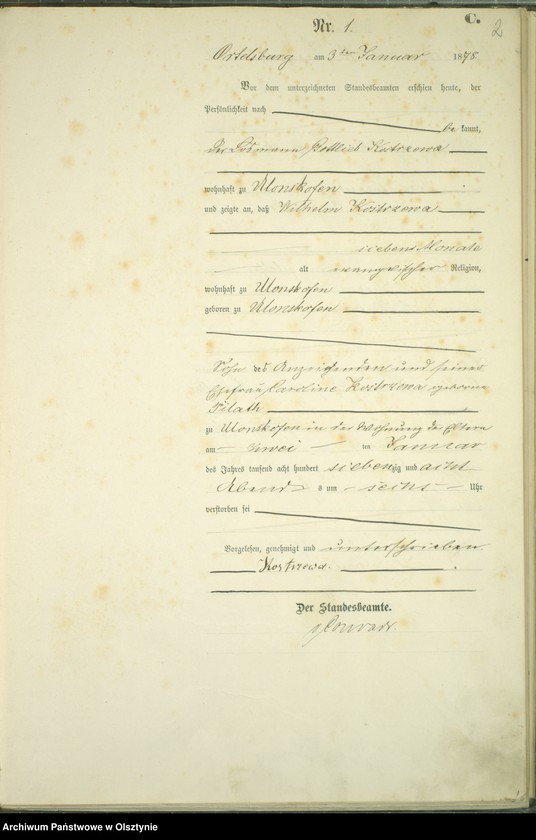 C.
2
Nr. 1.
Ortelsburg am 3ten Januar 1878
Vor dem unterzeichneten Standesbeamten erschien heute, der
Persönlichkeit nach
bekannt,
der Gottlieb Kostrzewa
wohnhaft zu Ulonskofen
und zeigte an, daß Wilhelm Kostrzewa
sieben Monate
alt evangelischer Religion,
wohnhaft zu Ulonskofen
geboren zu Ulonskofen
Sohn des Anzeigenden und seiner
Ehefrau Caroline Kostrzewa geborene
Pilath
zu Ulonskofen in der Wohnung der Eltern
am zwei ten Januar
des Jahres tausend acht hundert siebenzig und acht
Abends um sechs Uhr
verstorben sei
Vorgelesen, genehmigt und unterschrieben
Kostrzewa.
Der Standesbeamte.
Archiwum Państwowe w Olsztynie